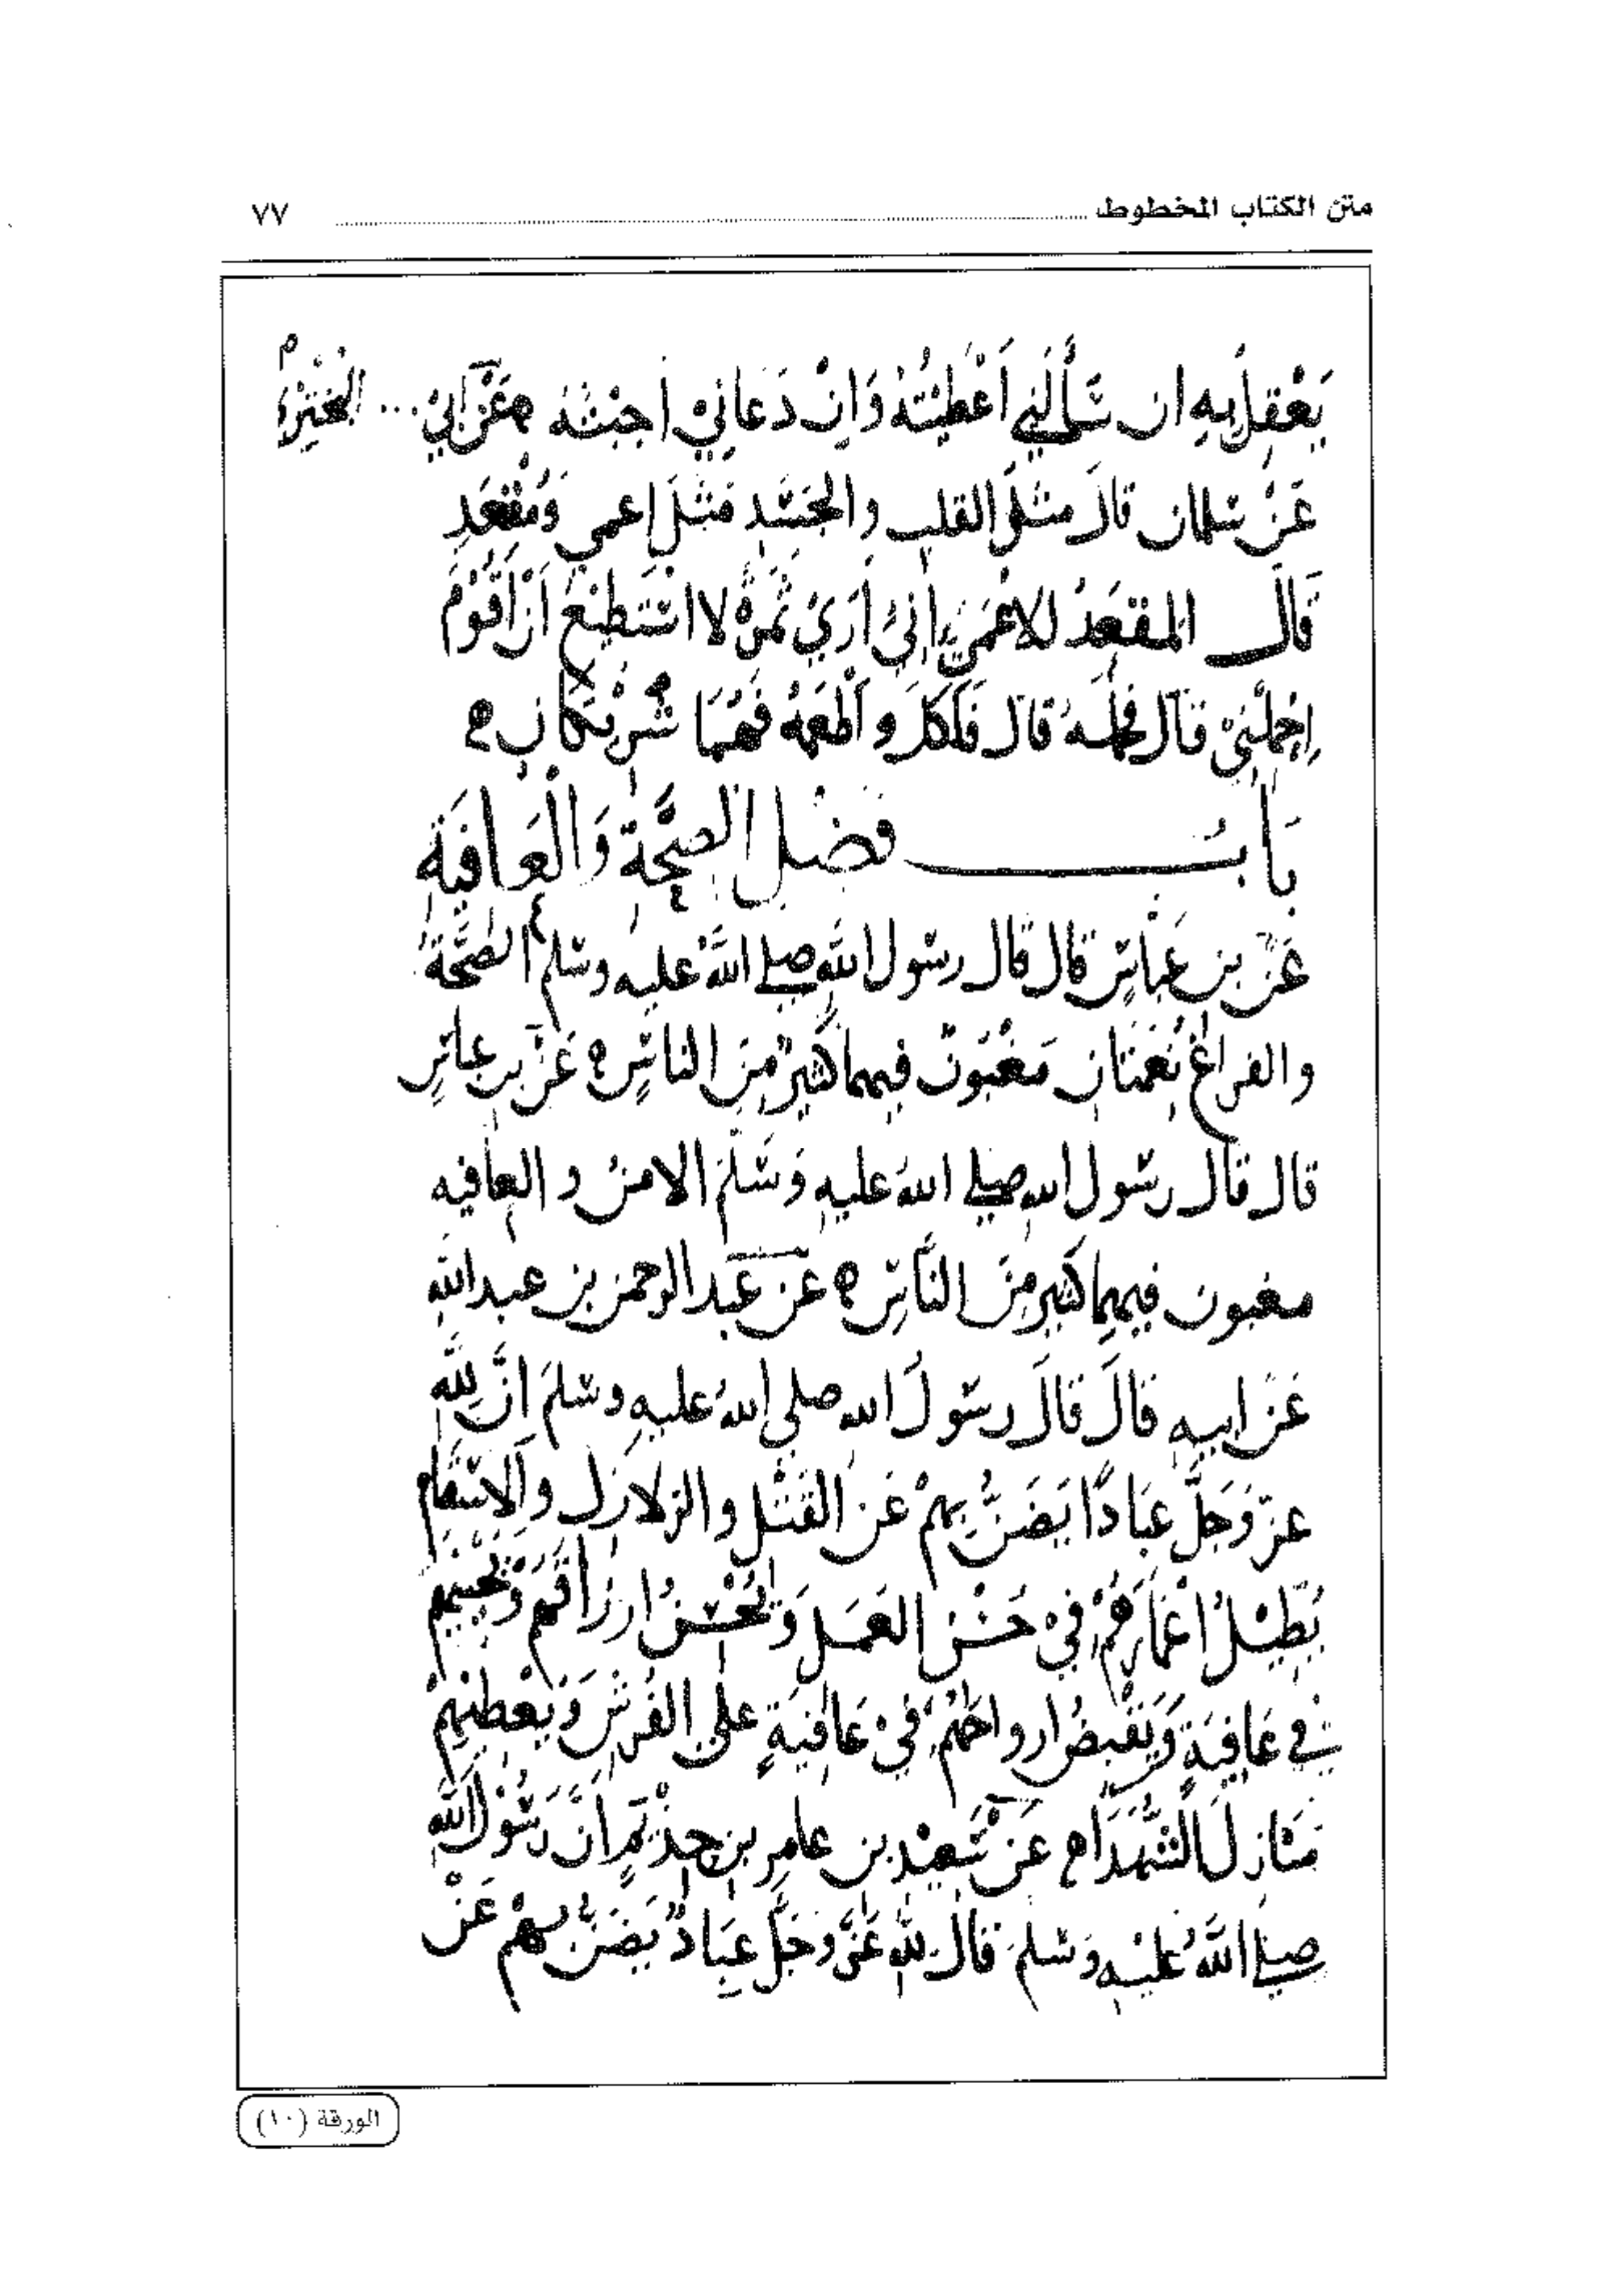 متن الكتاب المخطوط ........ ٧٧
يَعْقِلُ بِهِ ان سَأَلَنِي أَعْطَيْتُهُ وَاِنْ دَعَانِيْ اجبْتُهُ ه عَنْ ابيْ ... البَخْتَرِيْ
عَنْ سلمان قالَ مثلُ القلب والجَسَدِ مَثَلُ اعمي وَمُقْعَدٍ
قَالَ المقعَدُ للاعْمَي اِنيْ اَرَيْ ثَمَرةً لا استَطِيْعُ اَنْ اَقُوْمَ
اِحْمِلْنيْ قالَ فحملهُ قالَ فَاَكلَ واَطْعَمَهُ فَهُمَا شَرِيْكَانِ ه
بَابُ فَضْلِ الصِّحَّةِ وَالْعَافِيَةِ
عَنْ بن عَباسٍ قال قال رسُول اللهِ صلي اللهُ عليهِ وسلم الصِّحَّةُ
والفراغُ نِعْمَتَانِ مَغْبُوْنٌ فيهما كَثِيْرٌ مِنَ الناسِ ه عَنْ بن عباسٍ
قال قال رسُول الله صلي اللهُ عليهِ وَسَلَّمَ الامنُ والعافيه
مغبون فيهما كثير مِنَ النَّاسِ ه عَنْ عَبد الرحمن بن عبد اللهِ
عَنْ ابيهِ قالَ قالَ رسُولُ الله صلي اللهُ عليهِ وسلمَ انَّ لِلّهِ
عزّ وَجَلَّ عِبَادًا يَضَنُّ بِهِمْ عَنِ القَتْلِ والزلازل والاسقَام
يُطِيْلُ اعْمَارَهُمْ فِيْ حُسْنِ العَمَلِ وَيُحْسِنُ ارزاقَهم وَيُحْيِيْهِم
فِي عَافِيَةٍ وَيَقْبِضُ ارواحَهُمْ فيْ عَافِيَةٍ عليَ الفُرشِ وَيُعْطِيْهِمْ
مَنَازِلَ الشُّهَدَاءِ ه عَنْ سَعِيْد بن عامِرِ بن حِذْيَمٍ اَنَّ رَسُوْلَ اللهِ
صلي اللهُ عَليْهِ وَسلمَ قال للهِ عَزَّ وَجَلَّ عِبَادٌ يَضَنُّ بِهِمْ عَنْ
الورقة (١٠)